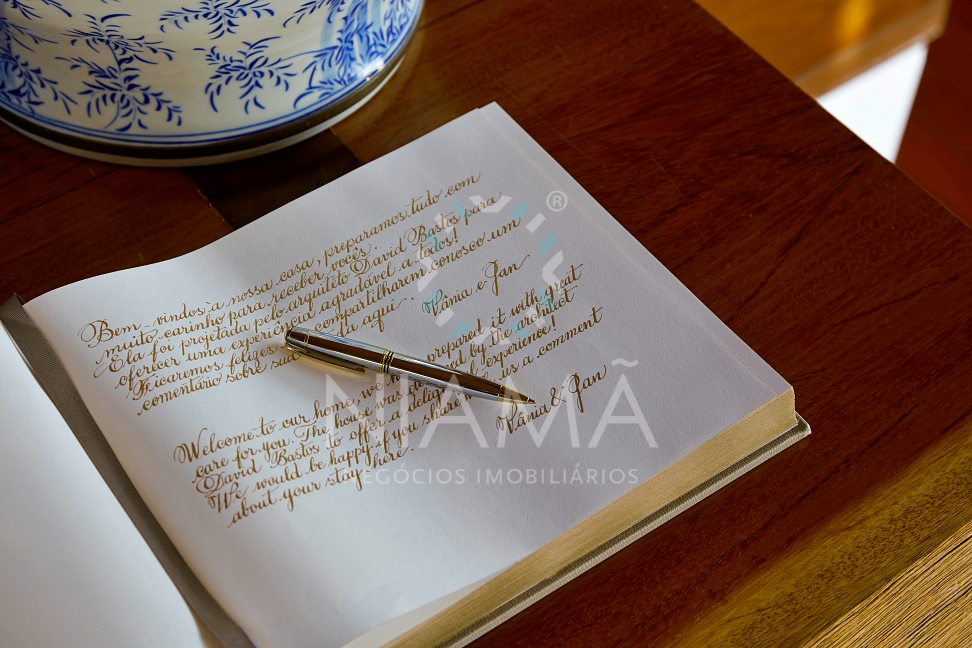 Bem-vindos à nossa casa, preparamos tudo com
muito carinho para receber vocês.
Ela foi projetada pelo arquiteto David Bastos para
oferecer uma experiência agradável a todos!
Ficaremos felizes compartilharem conosco um
comentário sobre aqui.
Vânia e Jan
Welcome to our home, we prepared it with great
care for you. The house was by the architect
David Bastos to offer a experience!
We would be happy if you share us a comment
about your stay here.
Vânia & Jan
®
NIAMÃ
NEGÓCIOS IMOBILIÁRIOS